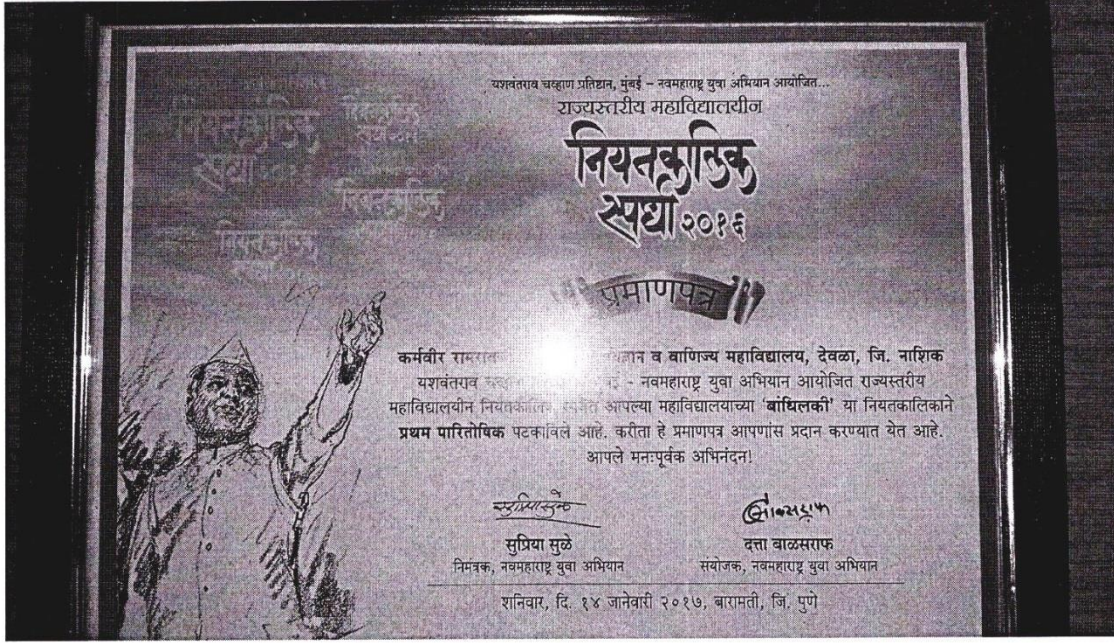 यशवंतराव चव्हाण प्रतिष्ठान, मुंबई – नवमहाराष्ट्र युवा अभियान आयोजित...
राज्यस्तरीय महाविद्यालयीन
नियतकालिक
स्पर्धा २०१६
प्रमाणपत्र
नियतकालिक
स्पर्धा
नियतकालिक
नियतकालिक
कर्मवीर व वाणिज्य महाविद्यालय, देवळा, जि. नाशिक
यशवंतराव – नवमहाराष्ट्र युवा अभियान आयोजित राज्यस्तरीय
महाविद्यालयीन नियतकालिक आपल्या महाविद्यालयाच्या 'बांधिलकी' या नियतकालिकाने
प्रथम पारितोषिक पटकाविले आहे. करीता हे प्रमाणपत्र आपणांस प्रदान करण्यात येत आहे.
आपले मनःपूर्वक अभिनंदन!
सुप्रिया सुळे
निमंत्रक, नवमहाराष्ट्र युवा अभियान
दत्ता बाळसराफ
संयोजक, नवमहाराष्ट्र युवा अभियान
शनिवार, दि. १४ जानेवारी २०१७, बारामती, जि. पुणे